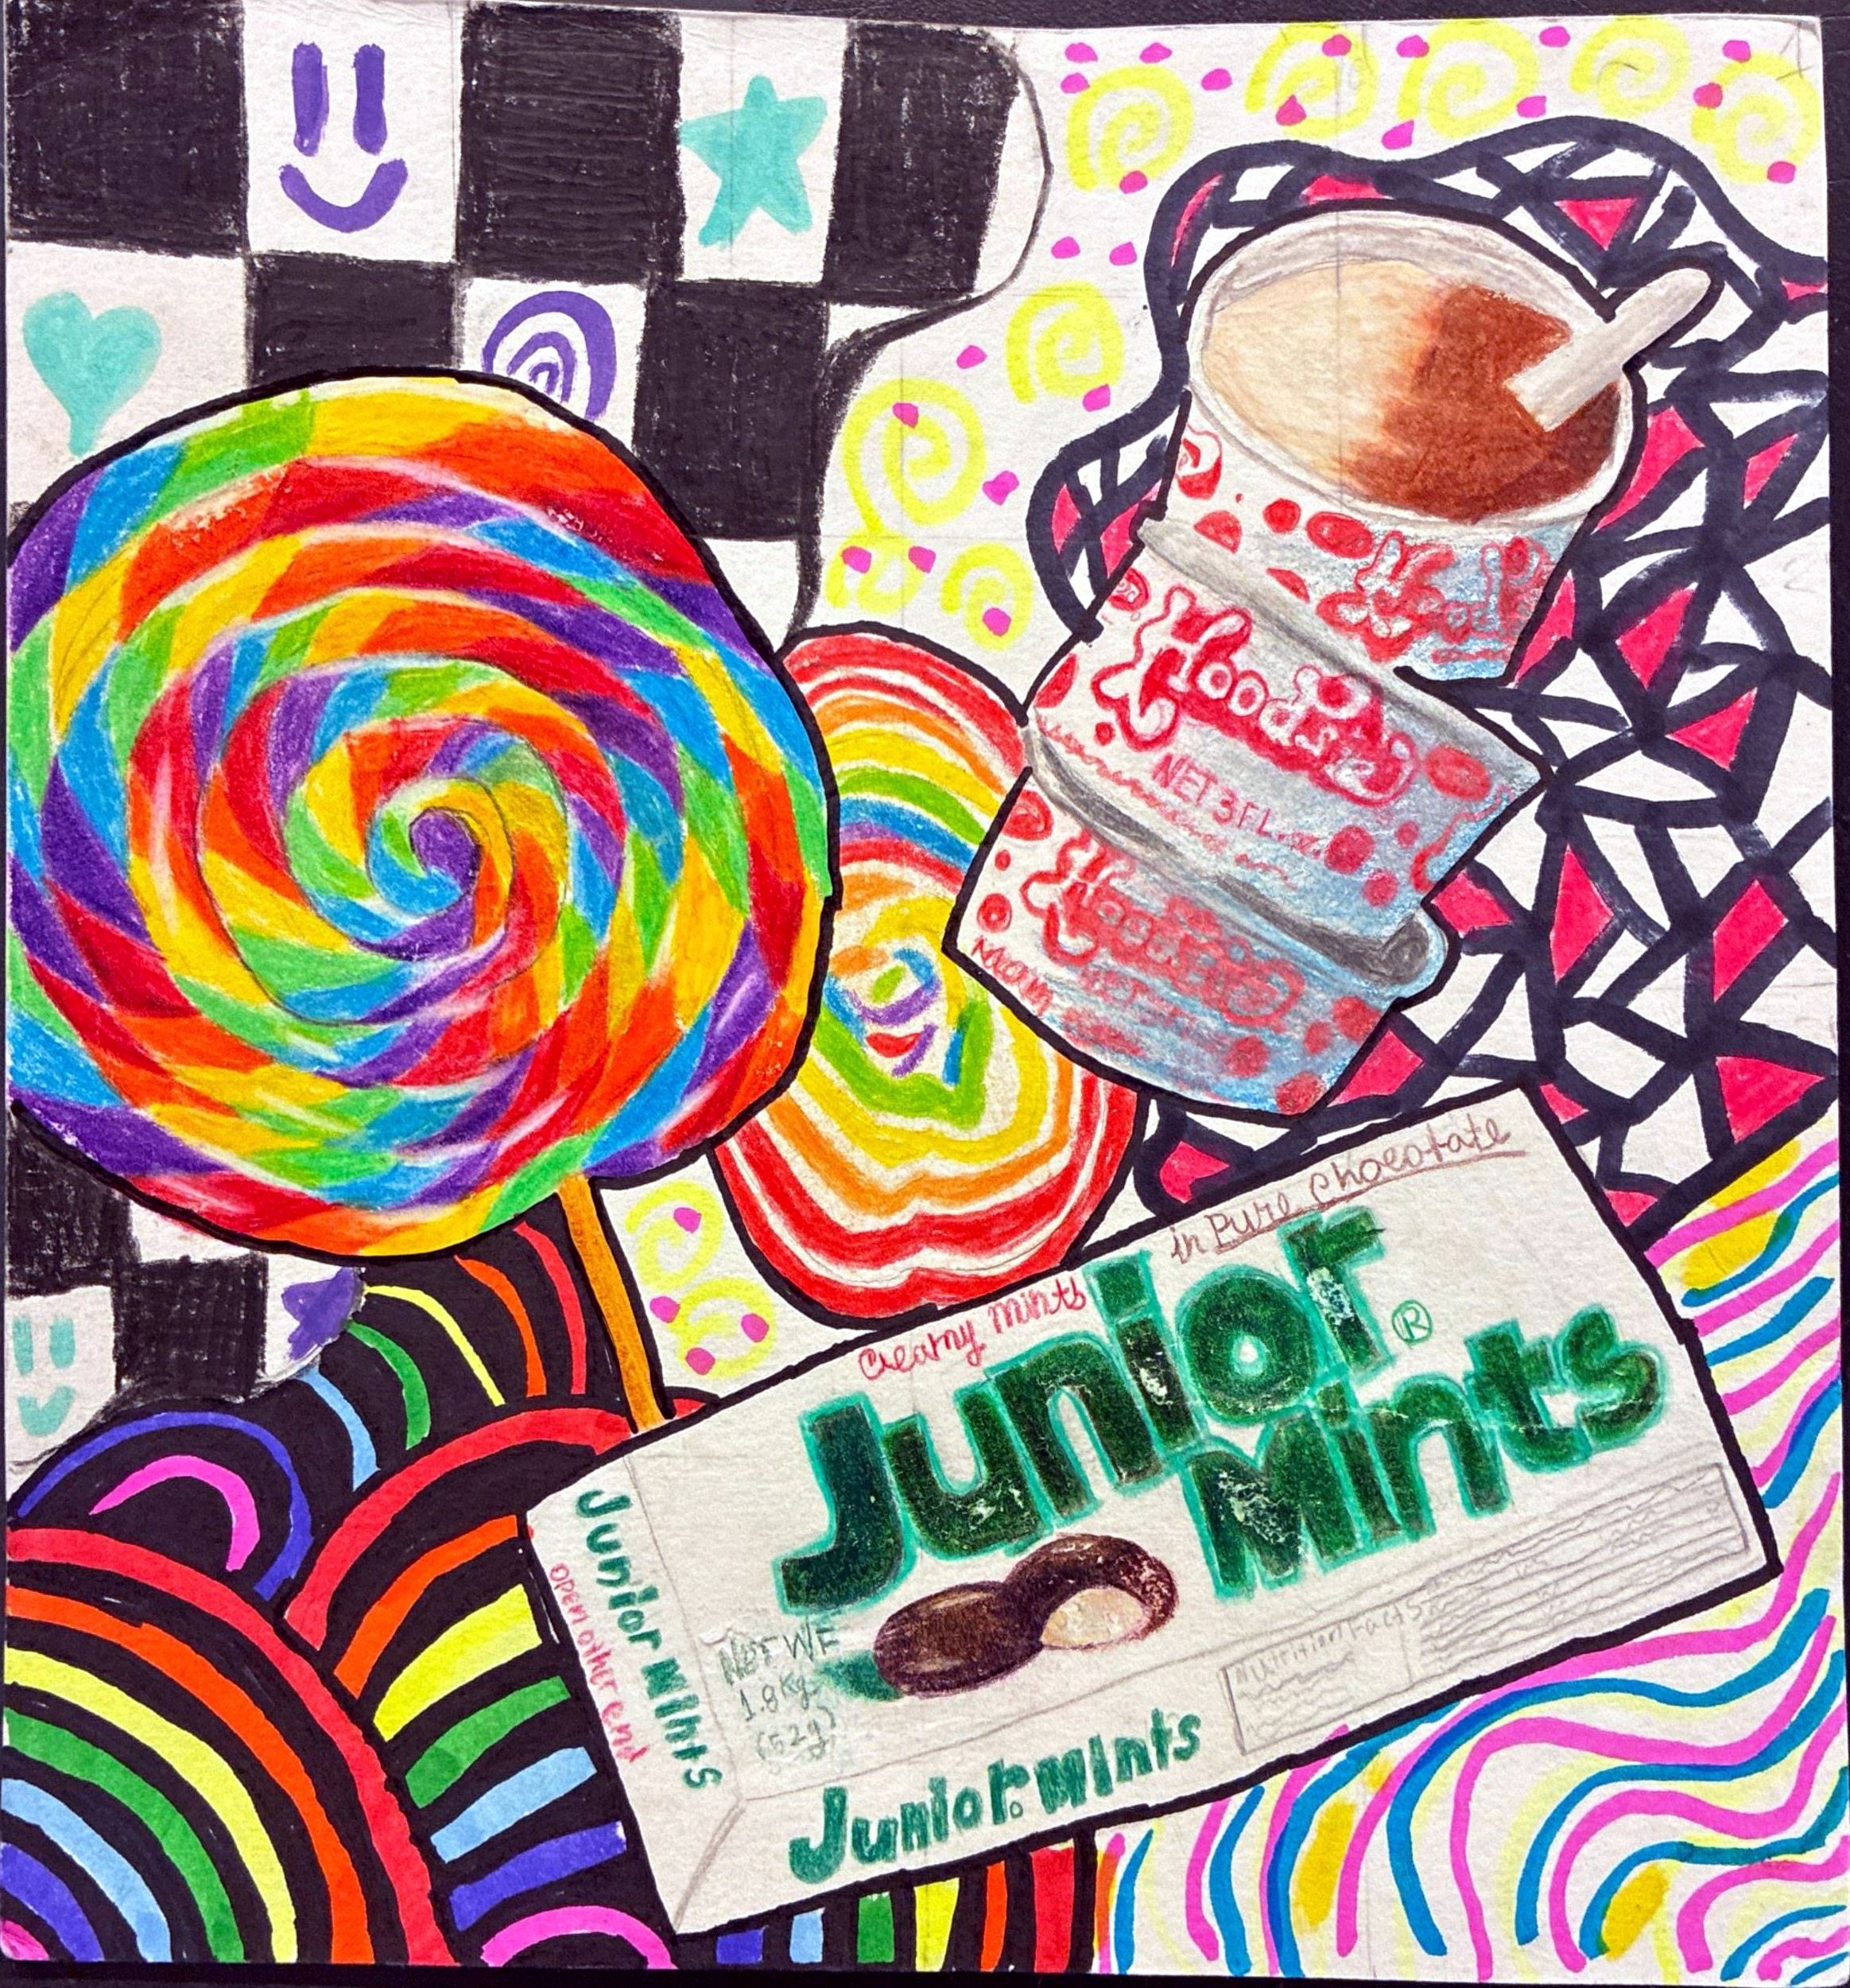 Hood's
Hood's
NET 3 FL. oz
Hood's
in Pure Chocolate
Creamy Mints
Junior
®
Mints
Junior Mints
open other end
Net WT
1.8 Kg.
(52g)
Nutrition Facts
Junior Mints